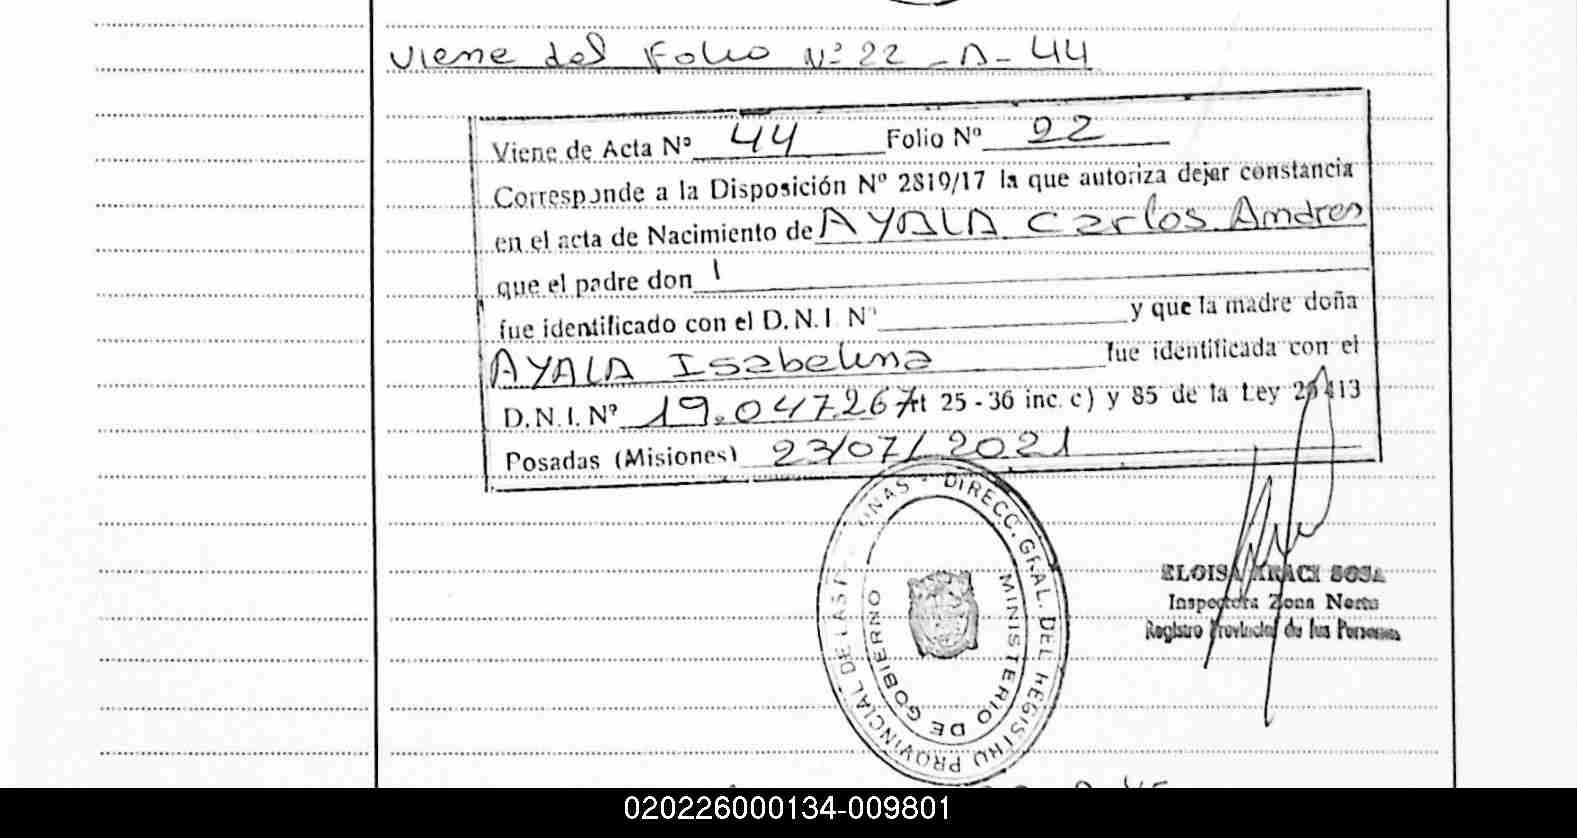 Viene del Folio Nº 22 - A - 44
Viene de Acta Nº 44 Folio Nº 22
Corresponde a la Disposición Nº 2819/17 la que autoriza dejar constancia
en el acta de Nacimiento de AYALA Carlos Andres
que el padre don
fue identificado con el D.N.I. Nº y que la madre doña
AYALA Isabelina fue identificada con el
D.N.I. Nº 19.047.267 Art 25 - 36 inc. c) y 85 de la Ley 26413
Posadas (Misiones) 23/07/2021
DIRECC. GRAL. DEL REGISTRO PROVINCIAL DE LAS PERSONAS
MINISTERIO DE GOBIERNO
ELOISA ARACI SOSA
Inspectora Zona Norte
Registro Provincial de las Personas
020226000134-009801